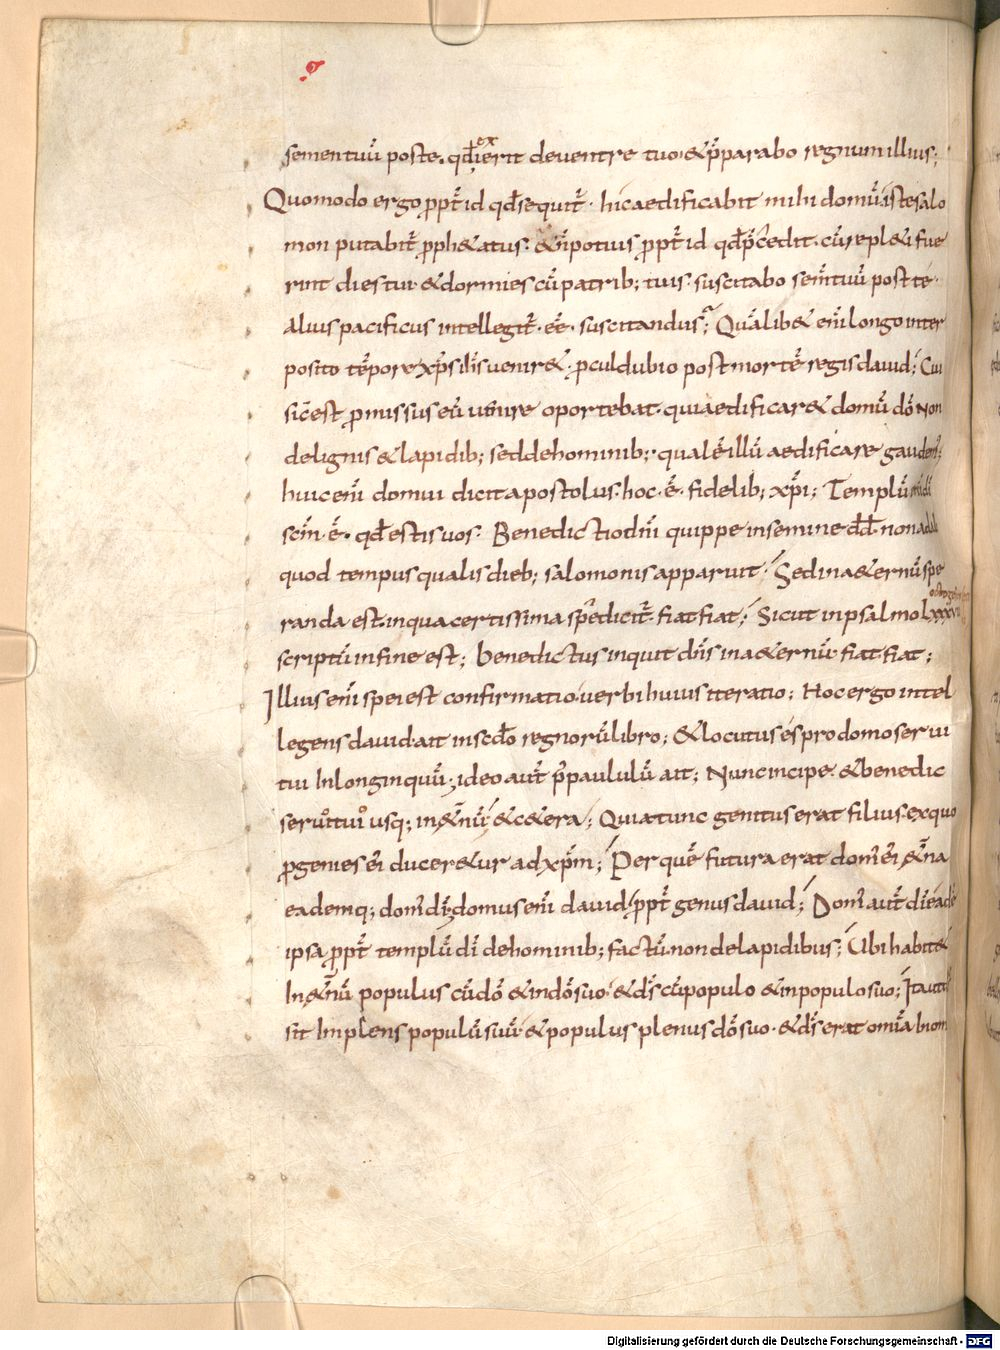 sementuū post te. qd̄ exierit deventre tuo. & p̄parabo regnum illius;
Quomodo ergo ppt̄ id qd̄ sequit̄. hic aedificabit mihi domū. iste salo
mon putabit̄ ph&atus. & n̄ potius ppt̄ id qd̄ p̄cedit. cū repl&i fue
rint dies tui. & dormies cū patrib; tuis. suscitabo sem̄ tuū post te.
Alius pacificus intellegit̄. eē. suscitandus; Quālib& eni longo inter
posito tēpore xp̄s ilis venir&. pculdubio post mortē regis david; Cui
sic ēst pmissus eū venire oportebat. qui aedificar& domū dō Non
de lignis & lapidib; sed de hominib;. qualē illū aedificare gaudem̄;
huic eni domui dicit apostolus. hoc. ē. fidelib; xpi; Templū
scm̄. ē. qd̄ estis vos. Benedictio dni quippe in semine dd̄. non ad
quod tempus qualis dieb; salomonis apparuit; Sed in a&ernū spe
randa est. in qua certissima spe dicit̄. fiat fiat; Sicut in psalmo LXXXVIII
scriptū in fine est; benedictus inquit dn̄s in a&ernū. fiat fiat;
Illius eni spei est confirmatio. verbi huius iteratio; Hoc ergo intel
legens david ait in scdo regnorū libro; & locutus es pro domo servi
tui In longinquū; ideo aut̄ p̄ paululū ait; Nunc incipe. & benedic
servo tuo usq; in &nū. & c&era; Quia tunc geniturus erat filium. ex quo
pgenies ei ducer&ur ad xpm; Per quē futura erat dom ei &na
eademq; dom di; domus eni david ppt̄ genus david; Dom aut̄ di eadē
ipsa ppt̄ templū di de hominib; factū. non de lapidibus; Ubi habit&
In &nū populus cū dō & in dō suo. & ds cū populo & in populo suo; Ita ut ds
sit Implens populū suū. & populus plenus dō suo. & ds erat omia